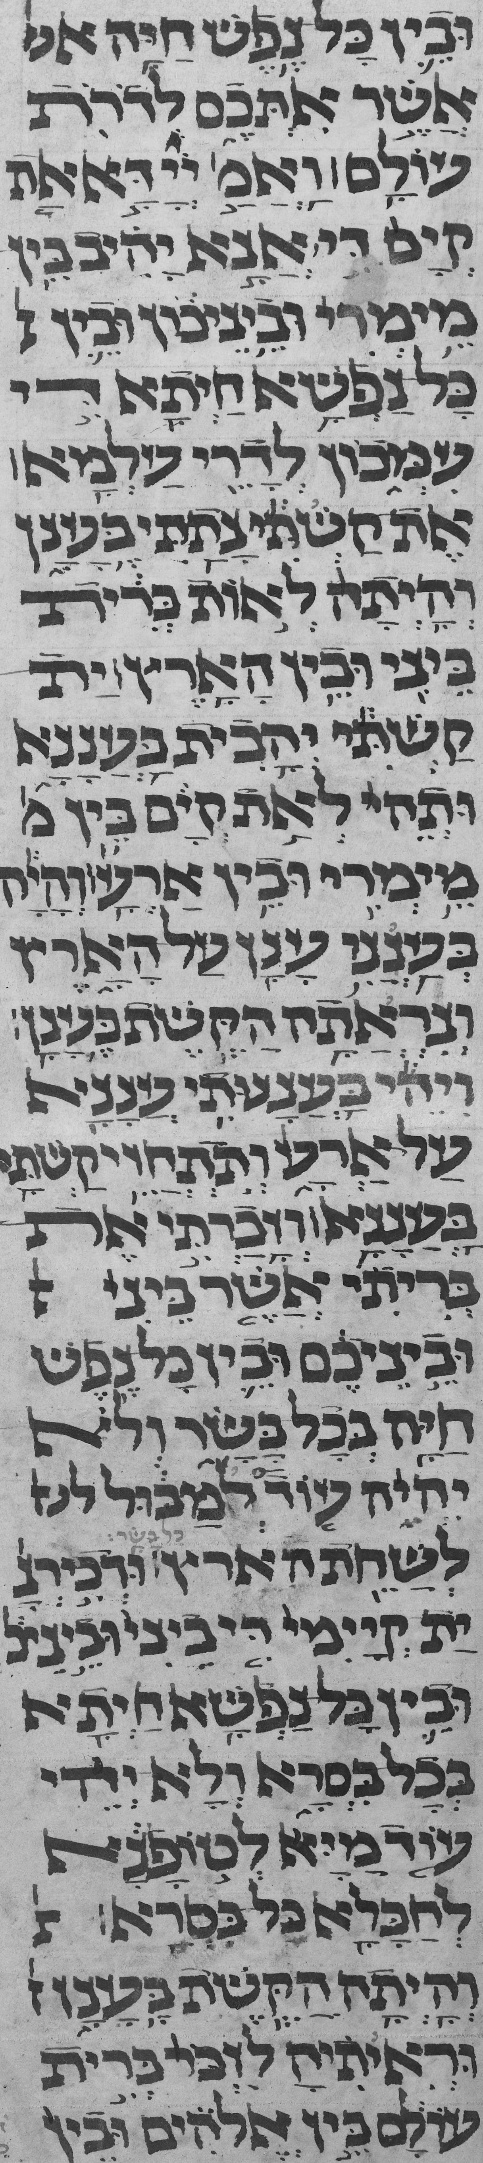 וּבֵין כָּל נֶפֶשׁ חַיָּה אש
אֲשֶׁר אִתְּכֶם לְדֹרֹת
עוֹלָם׃ וַאמ׳ יְיָ דָּא אָת
קְיָם דִּי אֲנָא יָהֵיב בֵּין
מֵימְרִי וּבֵינֵיכוֹן וּבֵין
כָּל נַפְשָׁא חַיְתָא דִּי
עִמְּכוֹן לְדָרֵי עָלְמָא׃
אֶת קַשְׁתִּי נָתַתִּי בֶּעָנָן
וְהָיְתָה לְאוֹת בְּרִית
בֵּינִי וּבֵין הָאָרֶץ׃ יָת
קַשְׁתִּי יְהַבִית בַּעֲנָנָא
וּתְהֵי לְאָת קְיָם בֵּין מ
מֵימְרִי וּבֵין אַרְעָא׃ וְהָיָה
בְּעַנְנִי עָנָן עַל הָאָרֶץ
וְנִרְאֲתָה הַקֶּשֶׁת בֶּעָנָן׃
וִיהֵי בַּעֲנָנוּתִי עֲנָנַיָּא
עַל אַרְעָא וְתִתְחֲזֵי קַשְׁתִּי
בַּעֲנָנָא׃ וְזָכַרְתִּי אֶת
בְּרִיתִי אֲשֶׁר בֵּינִי
וּבֵינֵיכֶם וּבֵין כָּל נֶפֶשׁ
חַיָּה בְּכָל בָּשָׂר וְלֹא
יִהְיֶה עוֹד לְמַבּוּל לש
לְשַׁחֵת הָאָרֶץ׃ כל בשר׃ וּדְכִירְנָא
יָת קְיָימִי דִּי בֵינִי וּבֵינֵיכ
וּבֵין כָּל נַפְשָׁא חַיְתָא
בְּכָל בִּסְרָא וְלָא יְהֵי
עוֹד מַיָּא לְטוֹפָנָא
לְחַבָּלָא כָּל בִּסְרָא׃
וְהָיְתָה הַקֶּשֶׁת בֶּעָנָן
וּרְאִיתִיהָ לִזְכֹּר בְּרִית
עוֹלָם בֵּין אֱלֹהִים וּבֵין